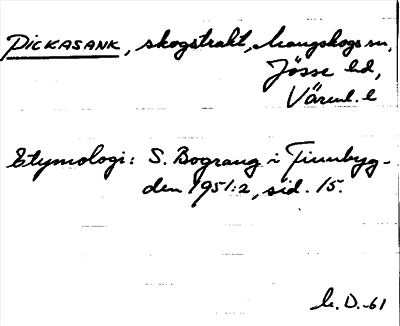 PICKASANK, skogstrakt, Mangskogs sn,
Jösse hd,
Värml. l
Etymologi: S. Bograng i Finnbyg-
den 1951:2, sid. 15.
h. D. -61